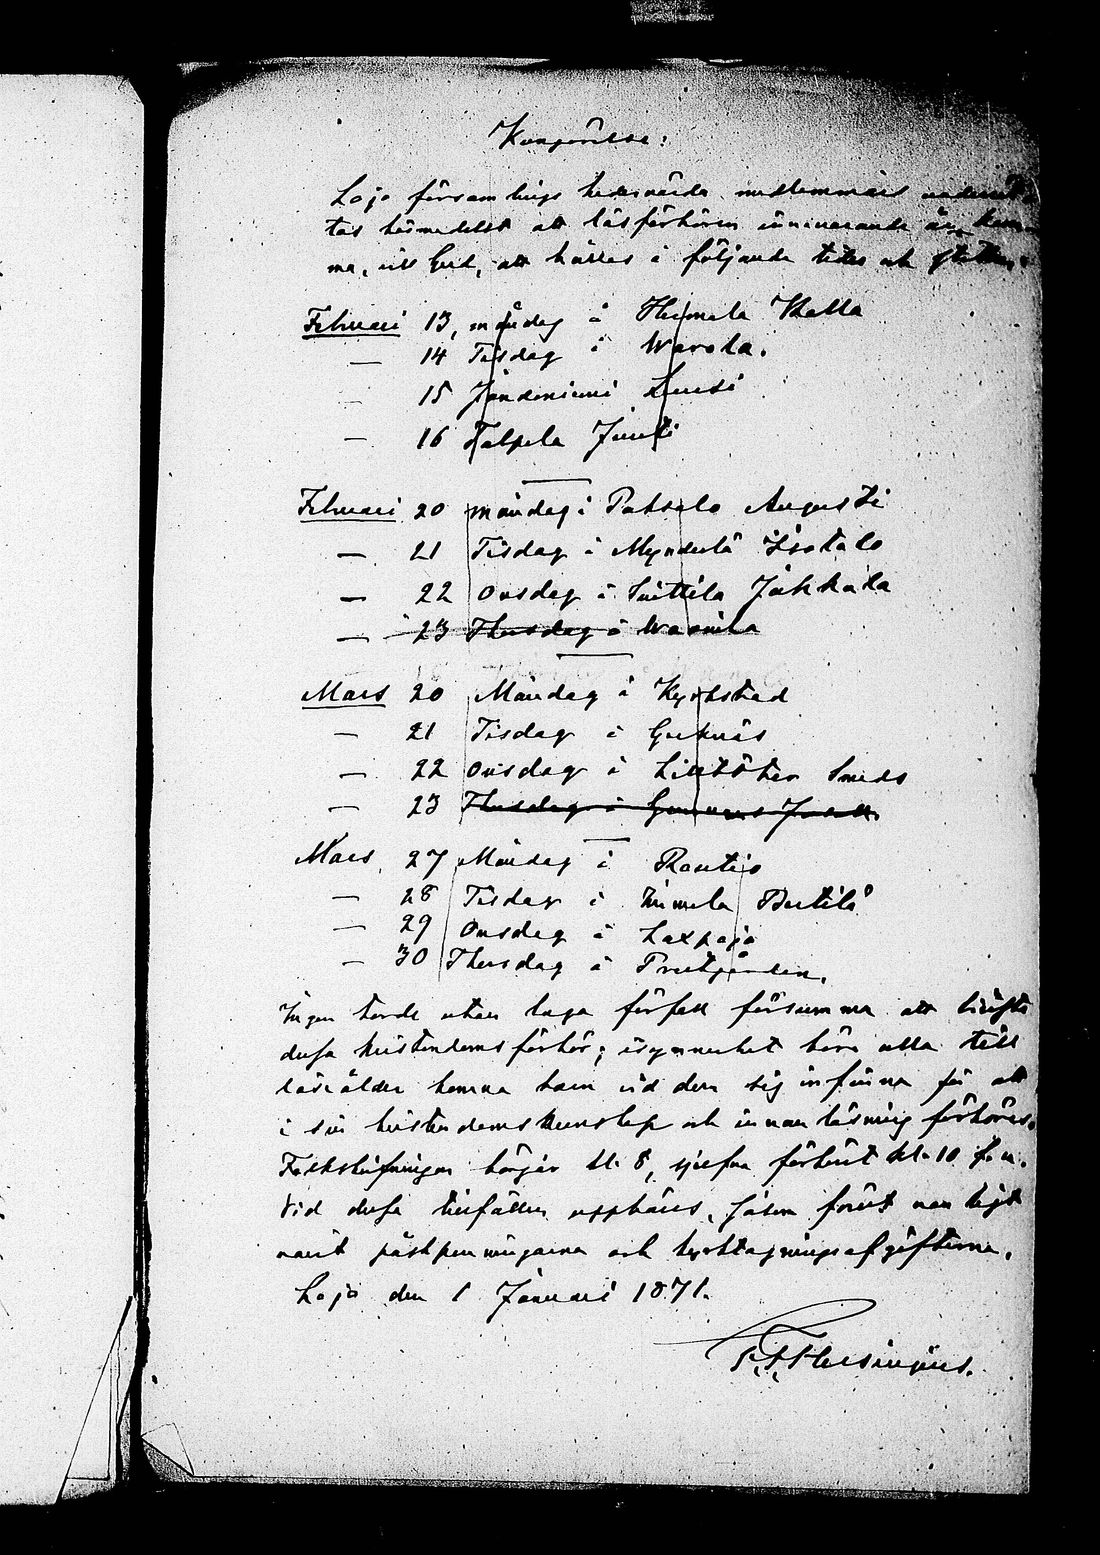 Kungörelse:
Lojo församlings hedervärda medlemmars underrät
tas härmedelst att läsförhören innevarande år, kom
ma, vill Gud, att hållas i följande tider och ställen:
Februari 13, måndag i Heimola Skalla
— 14 Tisdag i Warola.
— 15 Jöndoniemi Sussi
— 16 Talpela Juuti
Februari 20 måndag i Paksalo Augusti
— 21 Tisdag i Mynderlä Isotalo
— 22 Onsdag i Suittila Jukkala
— 23 Thorsdag i Waanila
Mars 20 Måndag i Kyrkstad
— 21 Tisdag i Gerknäs
— 22 Onsdag i Lillböter Smeds
— 23 Thorsdag i Gunnars
Mars 27 Måndag i Routio
— 28 Tisdag i Immola Pertilä
— 29 Onsdag i Laxpojo
— 30 Thorsdag i Prestgården.
Ingen torde utan laga förfall försumma att bivista
dessa kristendomsförhör; isynnerhet böra alla till
läseålder komna barn vid dem sig infinna för att
i sin kristendomskunskap och innanläsning förhöras.
Folkskrifningen börjar kl. 8, sjelfva förhöret kl. 10 f.m.
Vid dessa tillfällen uppbäras, såsom förut van ligt
varit påskpenningarna och kyrktagningsafgifterna.
Lojo den 1 Januari 1871.